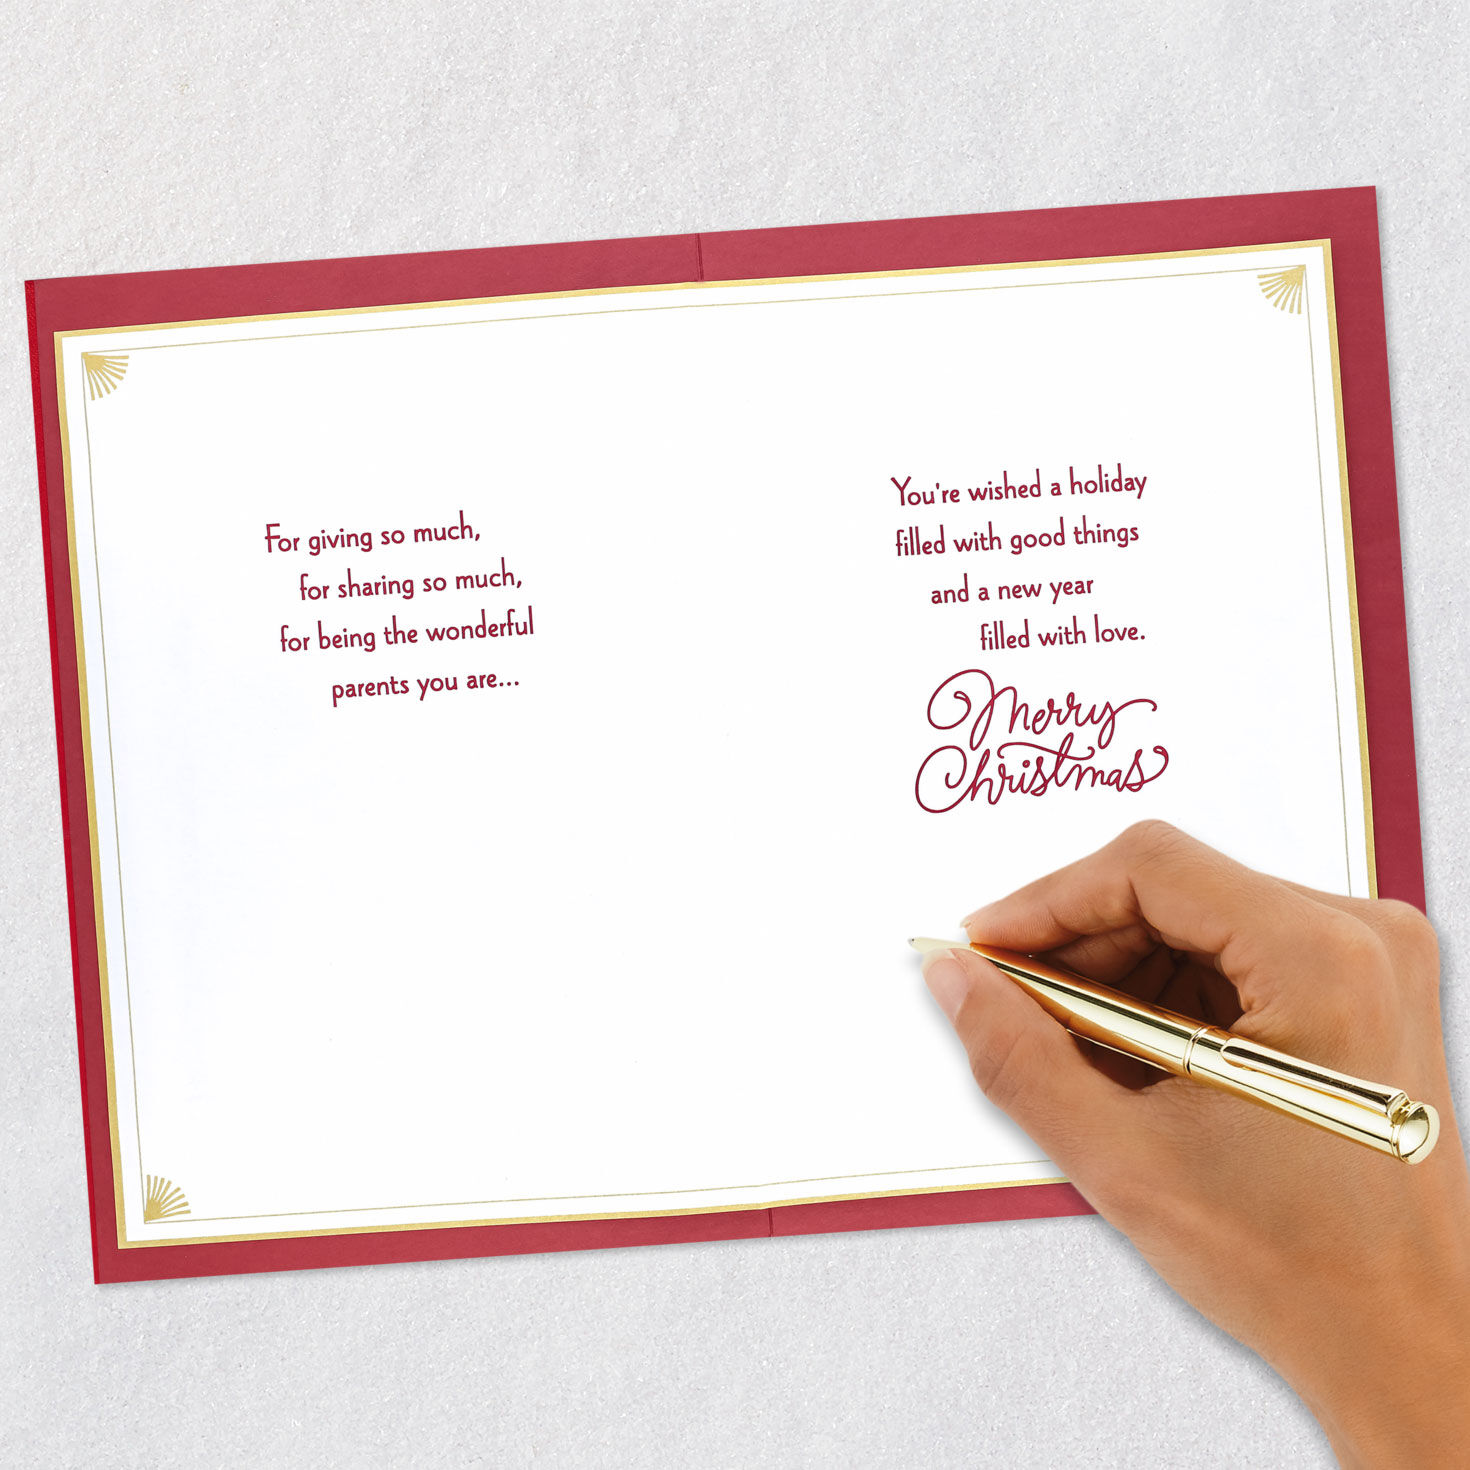 For giving so much,
for sharing so much,
for being the wonderful
parents you are...
You're wished a holiday
filled with good things
and a new year
filled with love.
Merry
Christmas